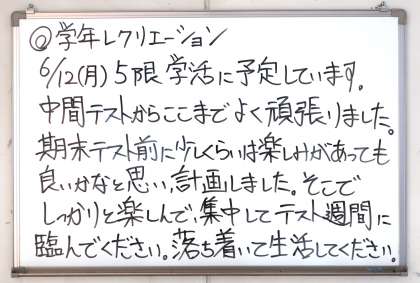 ◎学年レクリエーション
6/12(月)5限 学活に予定しています。
中間テストからここまでよく頑張りました。
期末テスト前に少しくらいは楽しみがあっても
良いかなと思い、計画しました。そこで
しっかりと楽しんで、集中してテスト週間に
臨んでください。落ち着いて生活してください。